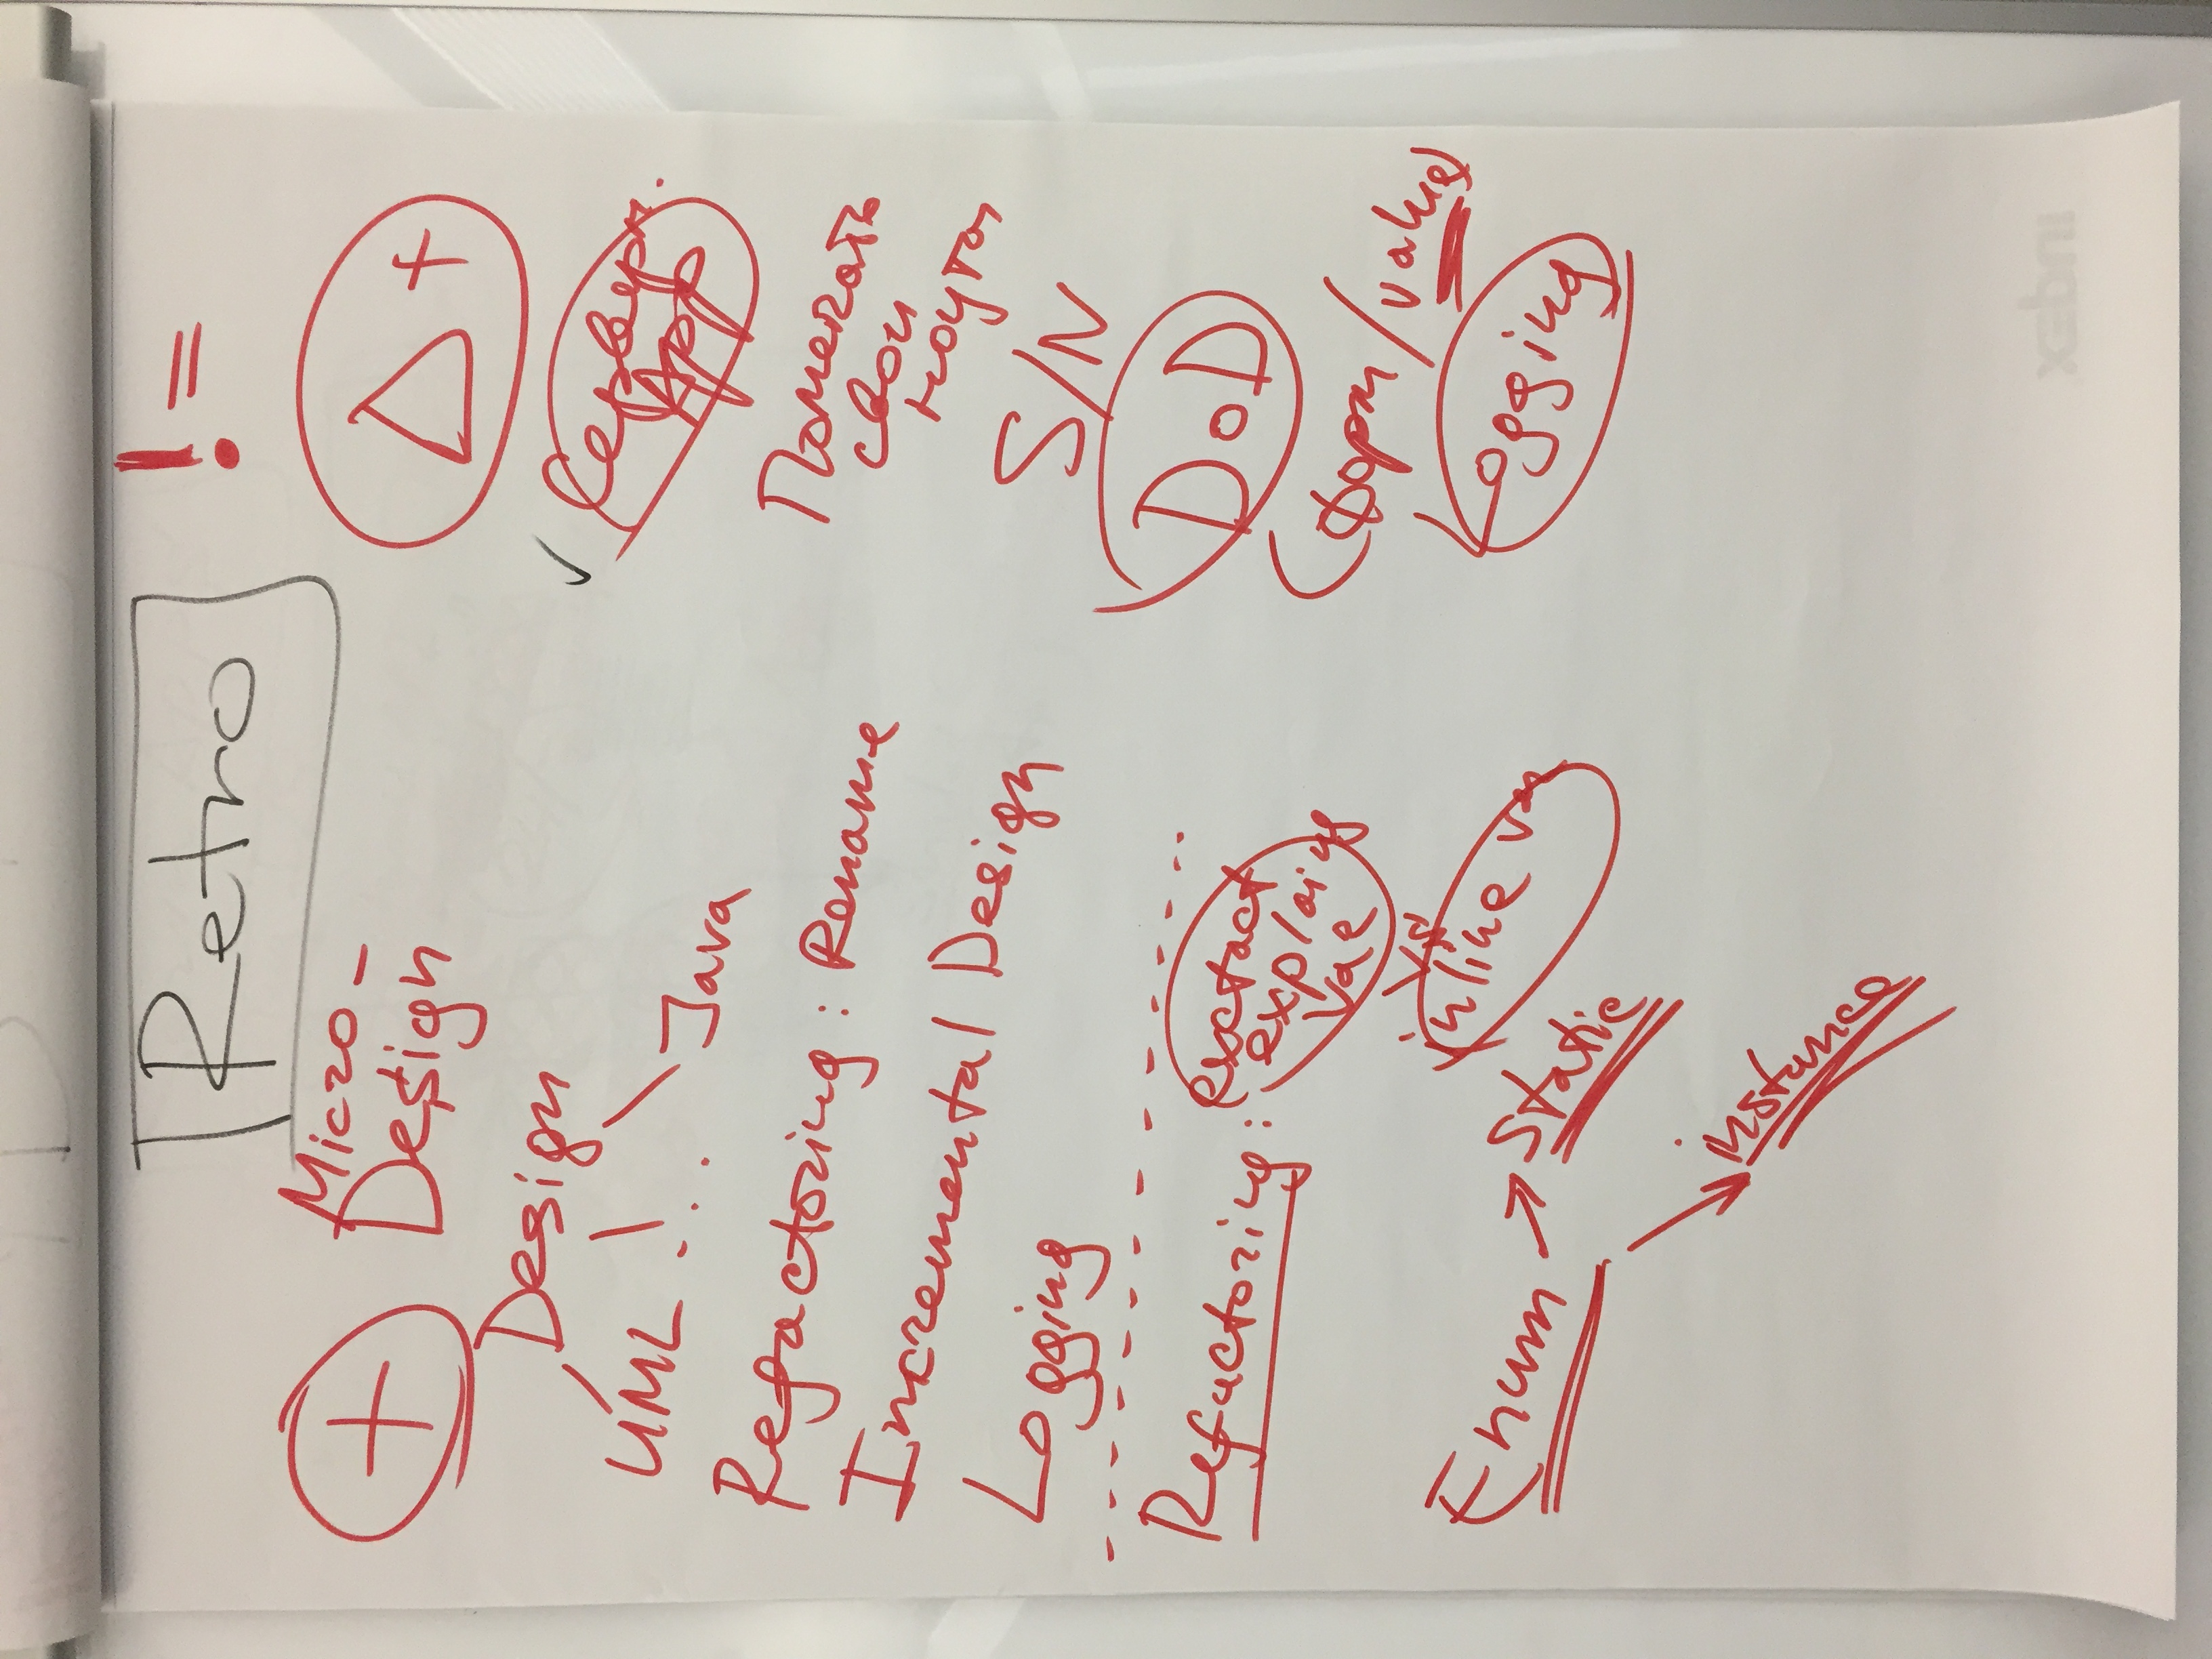 Retro
! =
+
Micro-
Design
Design
UML ... Java
Refactoring: Rename
Incremental Design
Logging
Refactoring: exctact
explaing
var
vs
inline var
Enum → Static
instance
Δ +
✓ Серверн.
App
Помечать
свои
ноуты
S/N
DoD
(Форм/value)
Logging
index